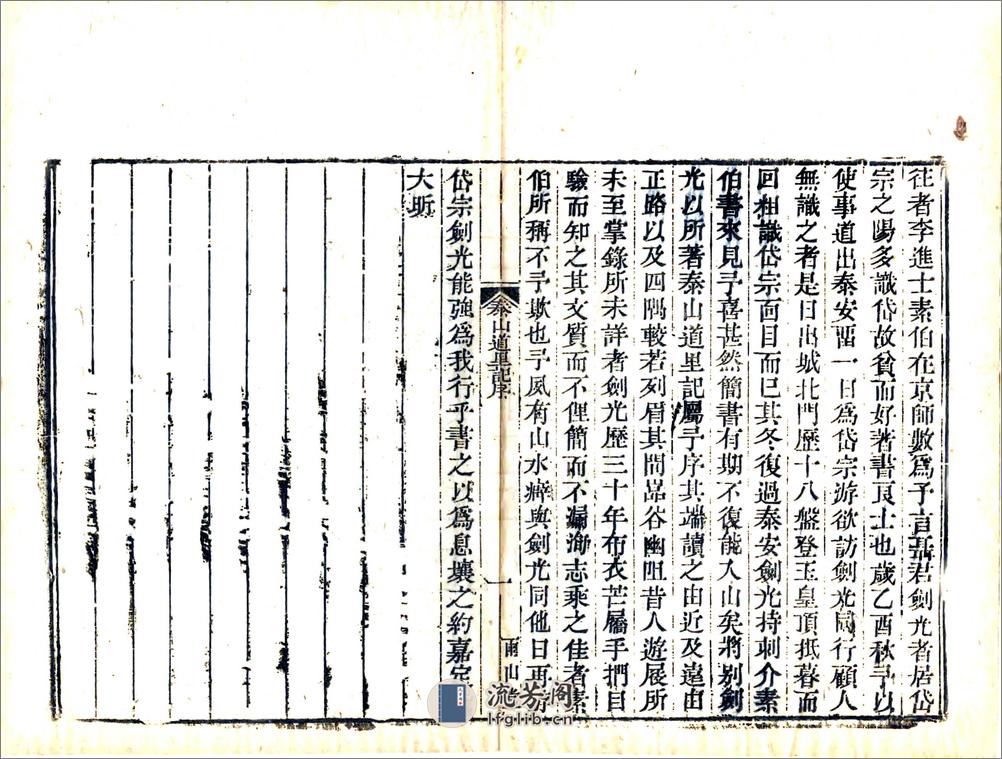 往者李進士素伯在京師數爲予言聶君劍光者居岱
宗之陽多識岱故貧而好著書良士也歲乙酉秋予以
使事道出泰安畱一日爲岱宗游欲訪劍光同行顧人
無識之者是日出城北門歷十八盤登玉皇頂抵暮而
回粗識岱宗面目而已其冬復過泰安劍光持刺介素
伯書來見予喜甚然簡書有期不復能入山矣將别劍
光以所著泰山道里記屬予序其端讀之由近及遠由
正路以及四隅較若列眉其間嵓谷幽阻昔人遊展所
未至掌錄所未詳者劍光歷三十年布衣芒屩手捫目
驗而知之其文質而不俚簡而不漏洵志乘之佳者素
伯所稱不予欺也予夙有山水癖與劍光同他日再
泰山道里記序
一
雨山
岱宗劍光能強爲我行乎書之以爲息壤之約嘉定
大昕
流芳阁
lfglib.cn